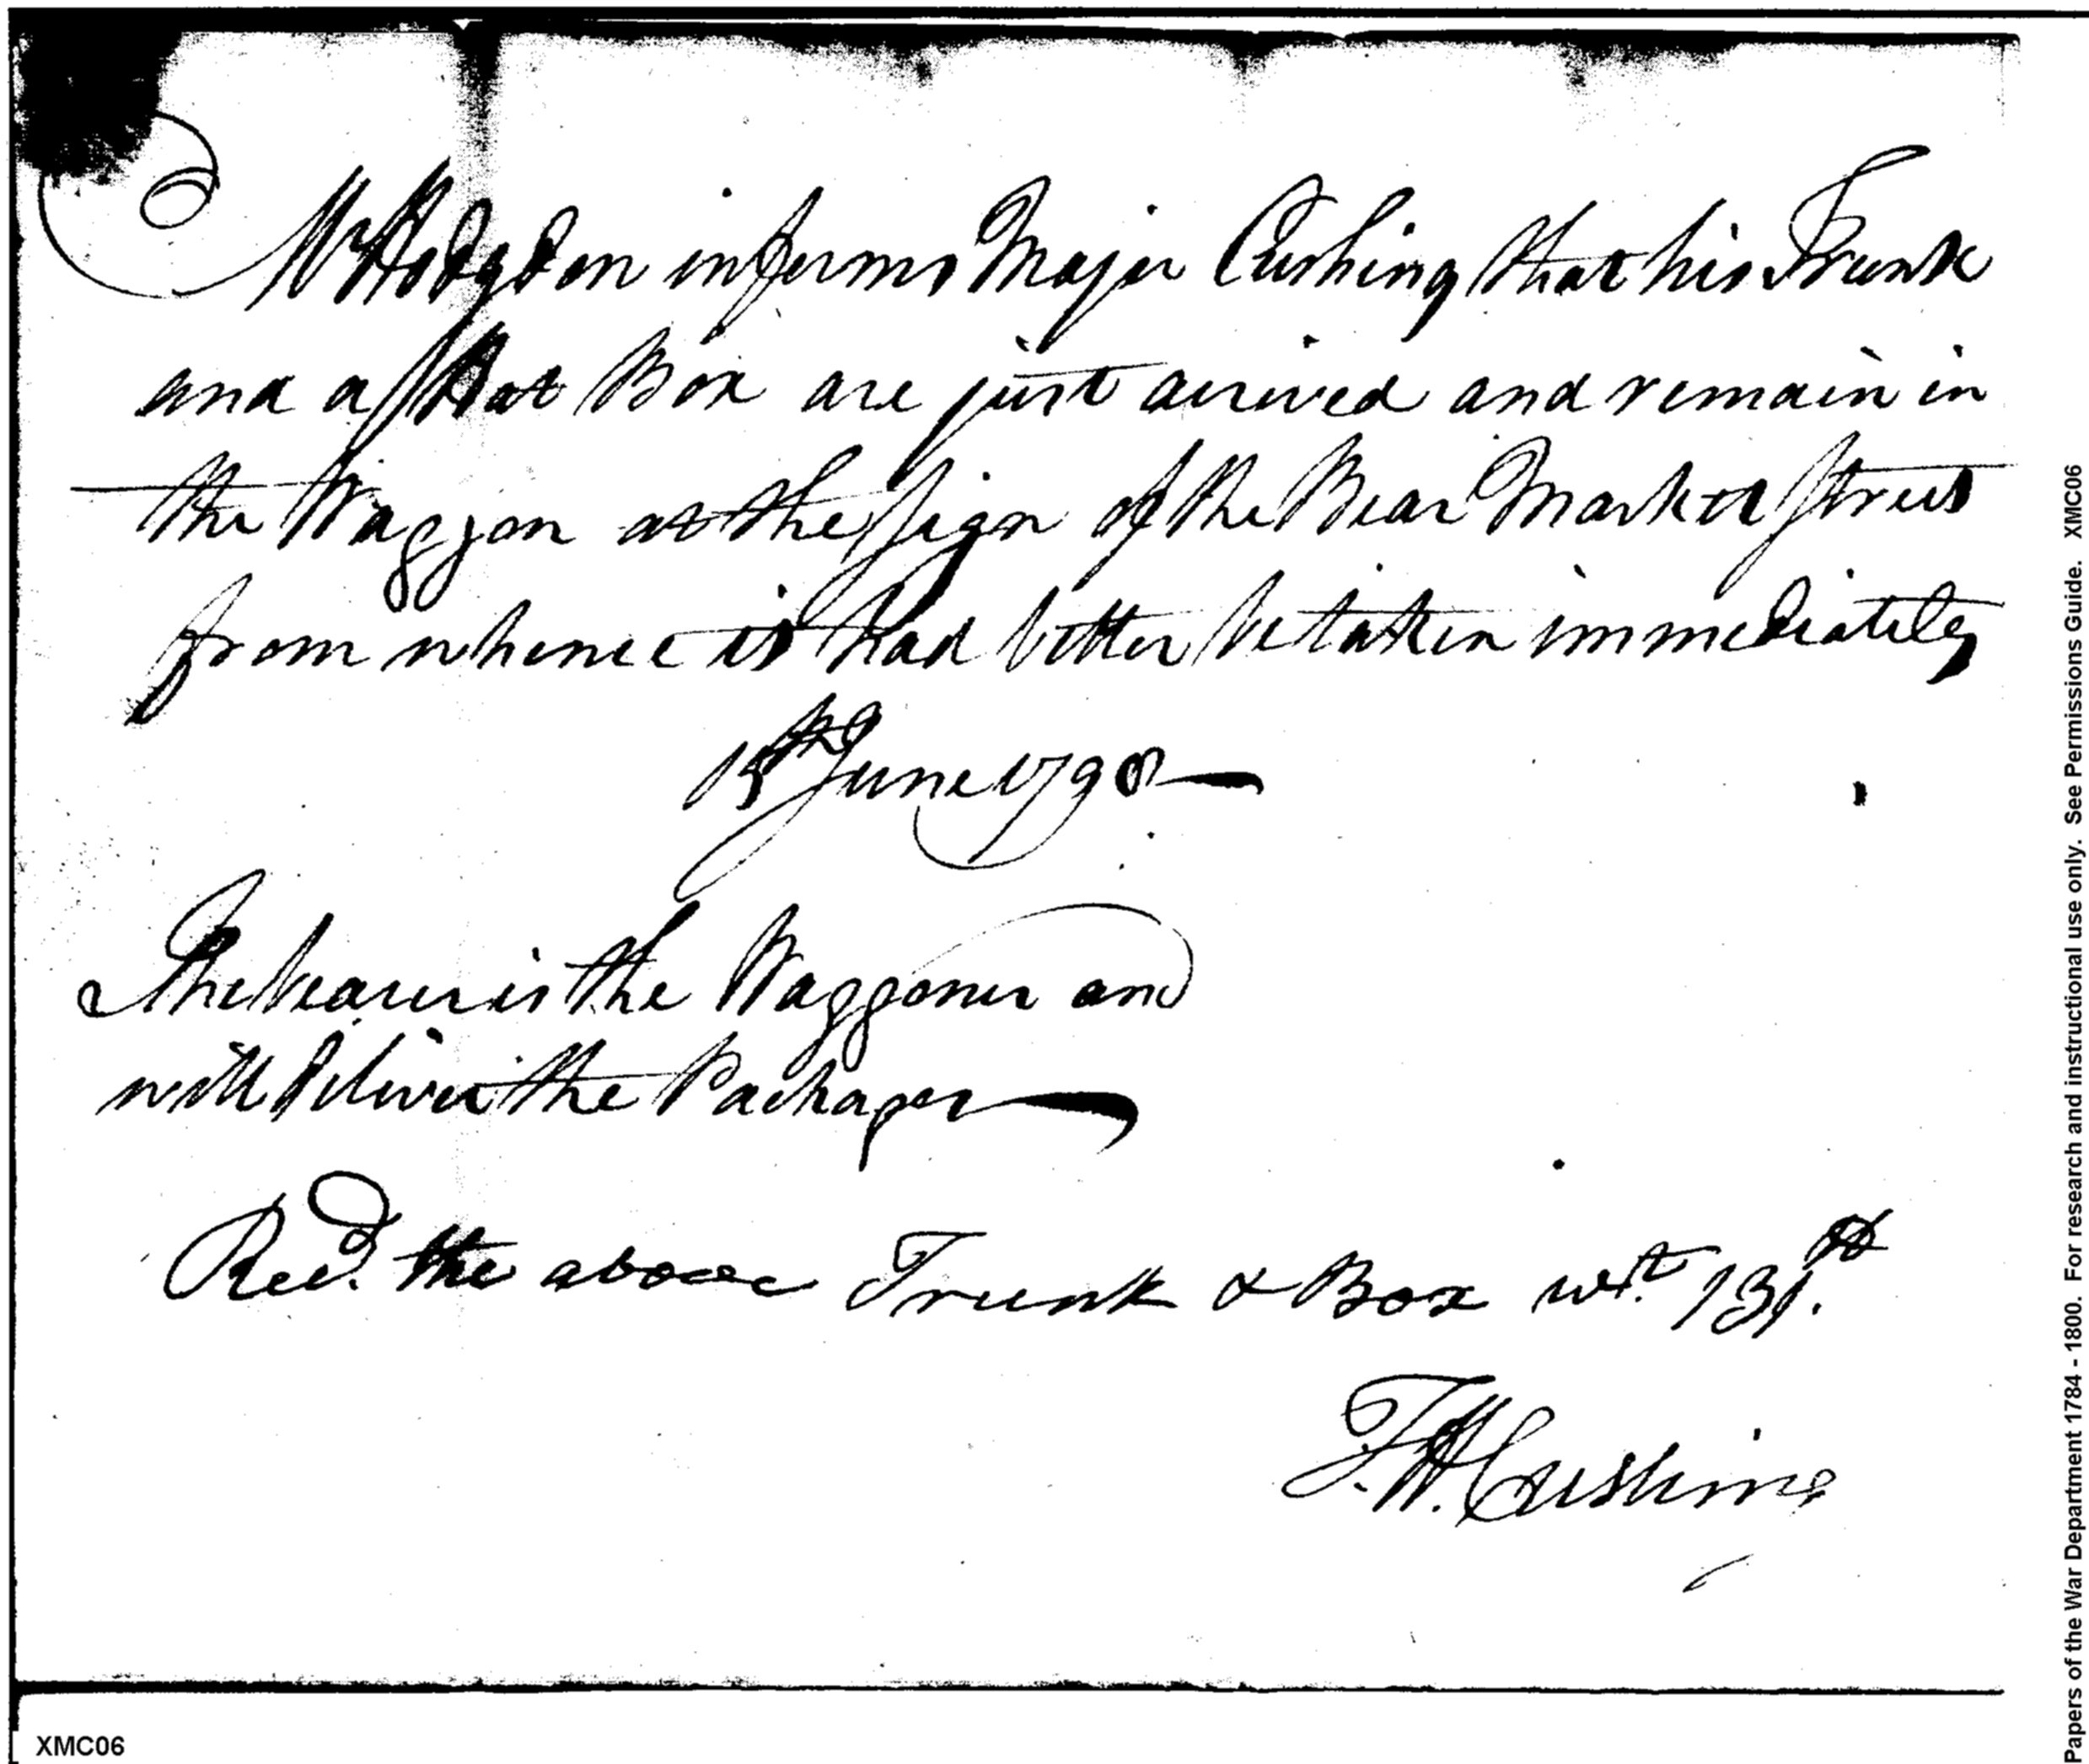 Mr Hodgdon informs Major Cushing that his Trunk
and a Hat Box are just arrived and remain in
the Waggon at the sign of the Bear Market Street
from whence it had better be taken immediately
15th June 1798
The bearer is the Waggoner and
will deliver the Packages
Recd. the above Trunk & Box wt. 131. lb
T. H. Cushing
Papers of the War Department 1784 - 1800. For research and instructional use only. See Permissions Guide. XMC06
XMC06